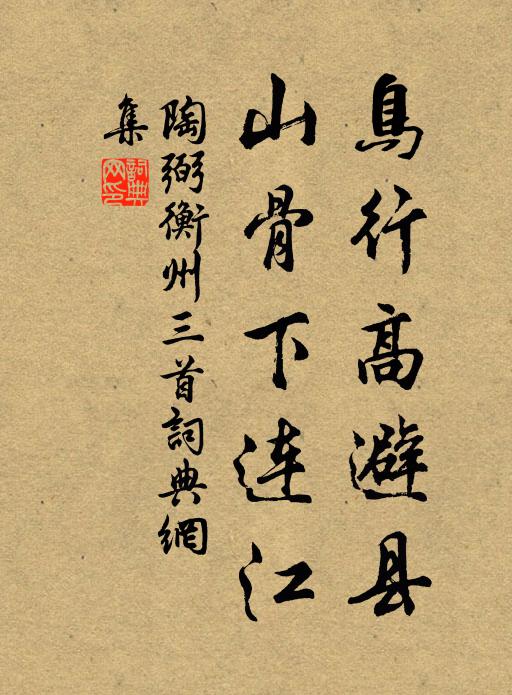 鳥行高避县
山骨下连江
陶弼衡州三首詞典網
集
詞典网印